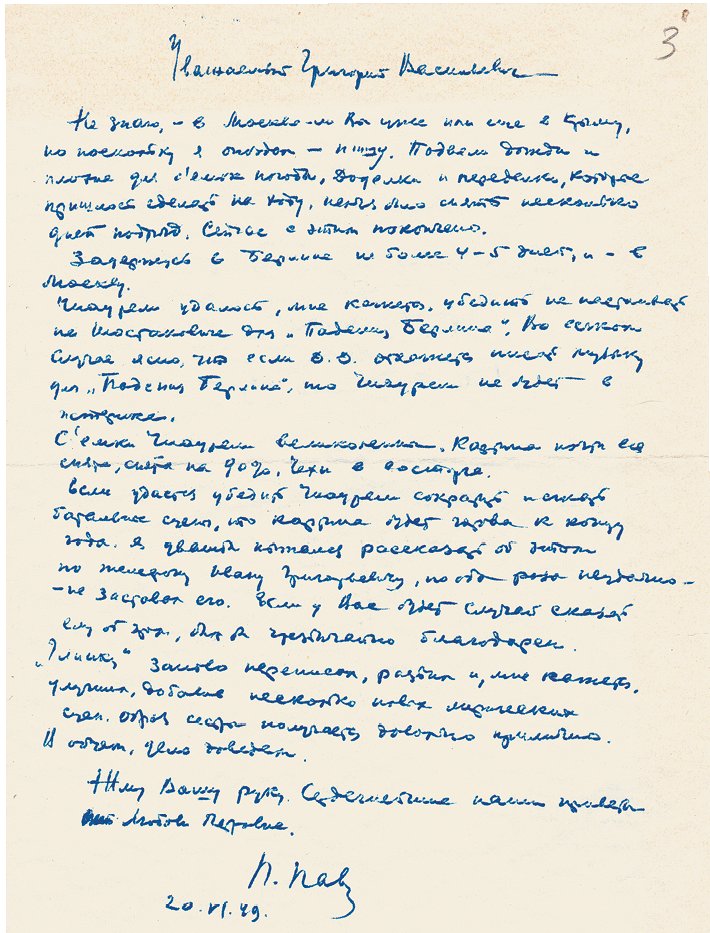 3
Уважаемый Григорий Васильевич
Не знаю, – в Москве ли Вы уже или еще в Крыму,
но поскольку я опоздал – пишу. Подвели дожди и
плохие для с'емок погоды, доделки и переделки, которые
пришлось сделать на ходу, нельзя было снять несколько
дней подряд. Сейчас с этим покончено.
Задержусь в Берлине не более 4–5 дней, и – в
Москву.
Чиаурели удалось, мне кажется, убедить не настаивать
на Шостаковиче для „Падения Берлина“. Во всяком
случае ясно, что если Д.Д. откажется писать музыку
для „Падения Берлина“, то Чиаурели не будет в
истерике.
С'емки Чиаурели великолепны. Картина почти вся
снята, снята на 90%. Чехи в восторге.
Если удастся убедить Чиаурели сократить и сжать
батальные сцены, то картина будет готова к концу
года. Я дважды пытался рассказать об этом
по телефону Ивану Григорьевичу, но оба раза неудачно –
– не заставал его. Если у Вас будет случай сказать
ему об этом, был бы чрезвычайно благодарен.
„Глинку“ заново переписал, разбил и, мне кажется,
улучшил, добавив несколько новых лирических
сцен. Образ сестры получается довольно прилично.
В общем, дело доведем.
Жму Вашу руку. Сердечнейшие наши приветы
Любови Петровне.
П. Пав
20.VI.49.